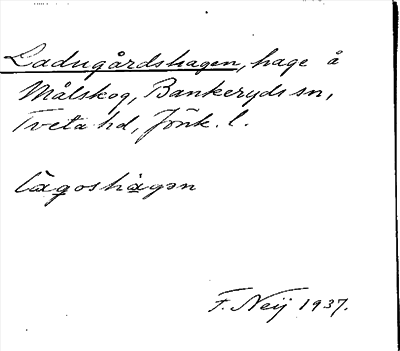 Ladugårdshagen, hage å
Målskog, Bankeryds sn,
Tveta hd, Jönk. l.
F. Neij 1937.